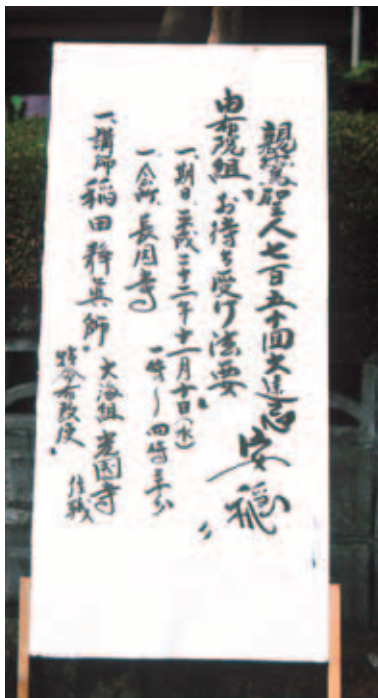 親鸞聖人七百五十回大遠忌 安穏
由布院組 お待ち受け法要
一、期日 平成二十二年十一月十日(水)
一時〜四時半
一、会所
一、講師 稲田静真師 大海組 住職
特命布教使